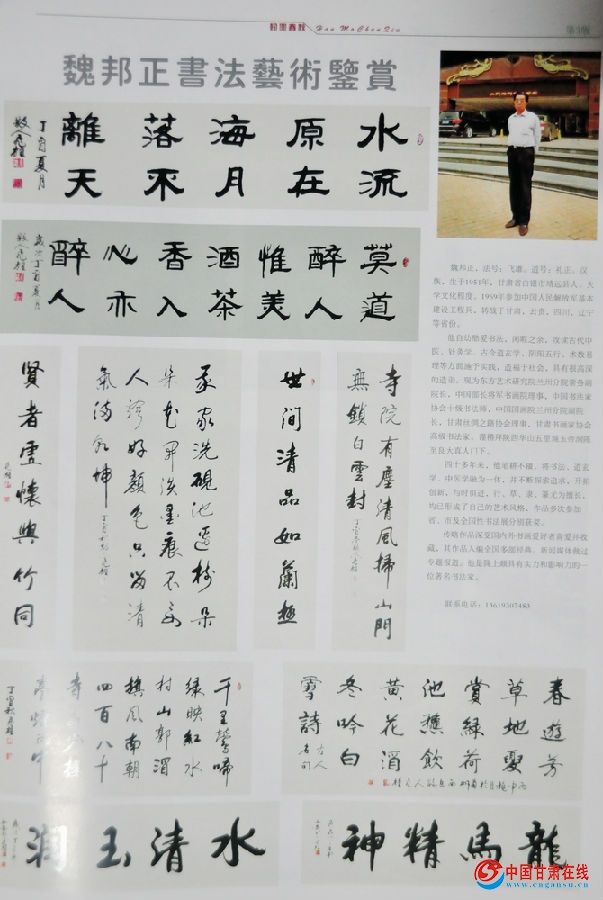 翰墨春秋 Han Mo Chun Qiu
第3版
魏邦正書法藝術鑒賞
水流
原在
海月
落不
離天
丁酉夏月
莫道
醉人
惟美
酒茶
香入
心亦
醉人
歲次丁酉夏月
賢者虛懷與竹同
我家洗硯池邊樹朵
朵花開淡墨痕不要
人誇好顏色只留清
氣滿乾坤
世間清品如蘭極
寺院有塵清風掃山門
無鎖白雲封
千里鶯啼
綠映紅水
村山郭酒
旗風南朝
四百八十
丁酉秋月
春遊芳
草地夏
賞綠荷
池秋飲
黃花酒
冬吟白
雪詩
古人名句
水清玉潤
龍馬精神
魏邦正，法号：飞雄，道号：礼正，汉
族，生于1951年，甘肃省白银市靖远县人，大
学文化程度。1969年参加中国人民解放军基本
建设工程兵，转战于甘肃，云贵，四川，辽宁
等省份。
他自幼酷爱书法，闲暇之余，攻读古代中
医、针灸学、古今道玄学、阴阳五行、术数易
理等方面施于实践，造福于社会，具有很高深
的造诣。现为东方艺术研究院兰州分院常务副
院长，中国部长将军书画院理事，中国书法家
协会十级书法师，中国国画院兰州分院副院
长，甘肃丝绸之路协会理事，甘肃书画家协会
高级书法家。
四十多年来，他笔耕不辍，将书法、道玄
学、中医学融为一体，并不断探索追求，开拓
创新，与时俱进，行、草、隶、篆尤为擅长，
均已形成了自己的艺术风格，作品多次参加
省、市及全国性书法展分别获奖。
传略作品深受国内外书画爱好者喜爱并收
藏，其作品入编全国多部辞典、新闻媒体做过
专题报道。他是陇上颇具有实力和影响力的一
位著名书法家。
联系电话：15695307483
中国甘肃在线
www.cngansu.cn